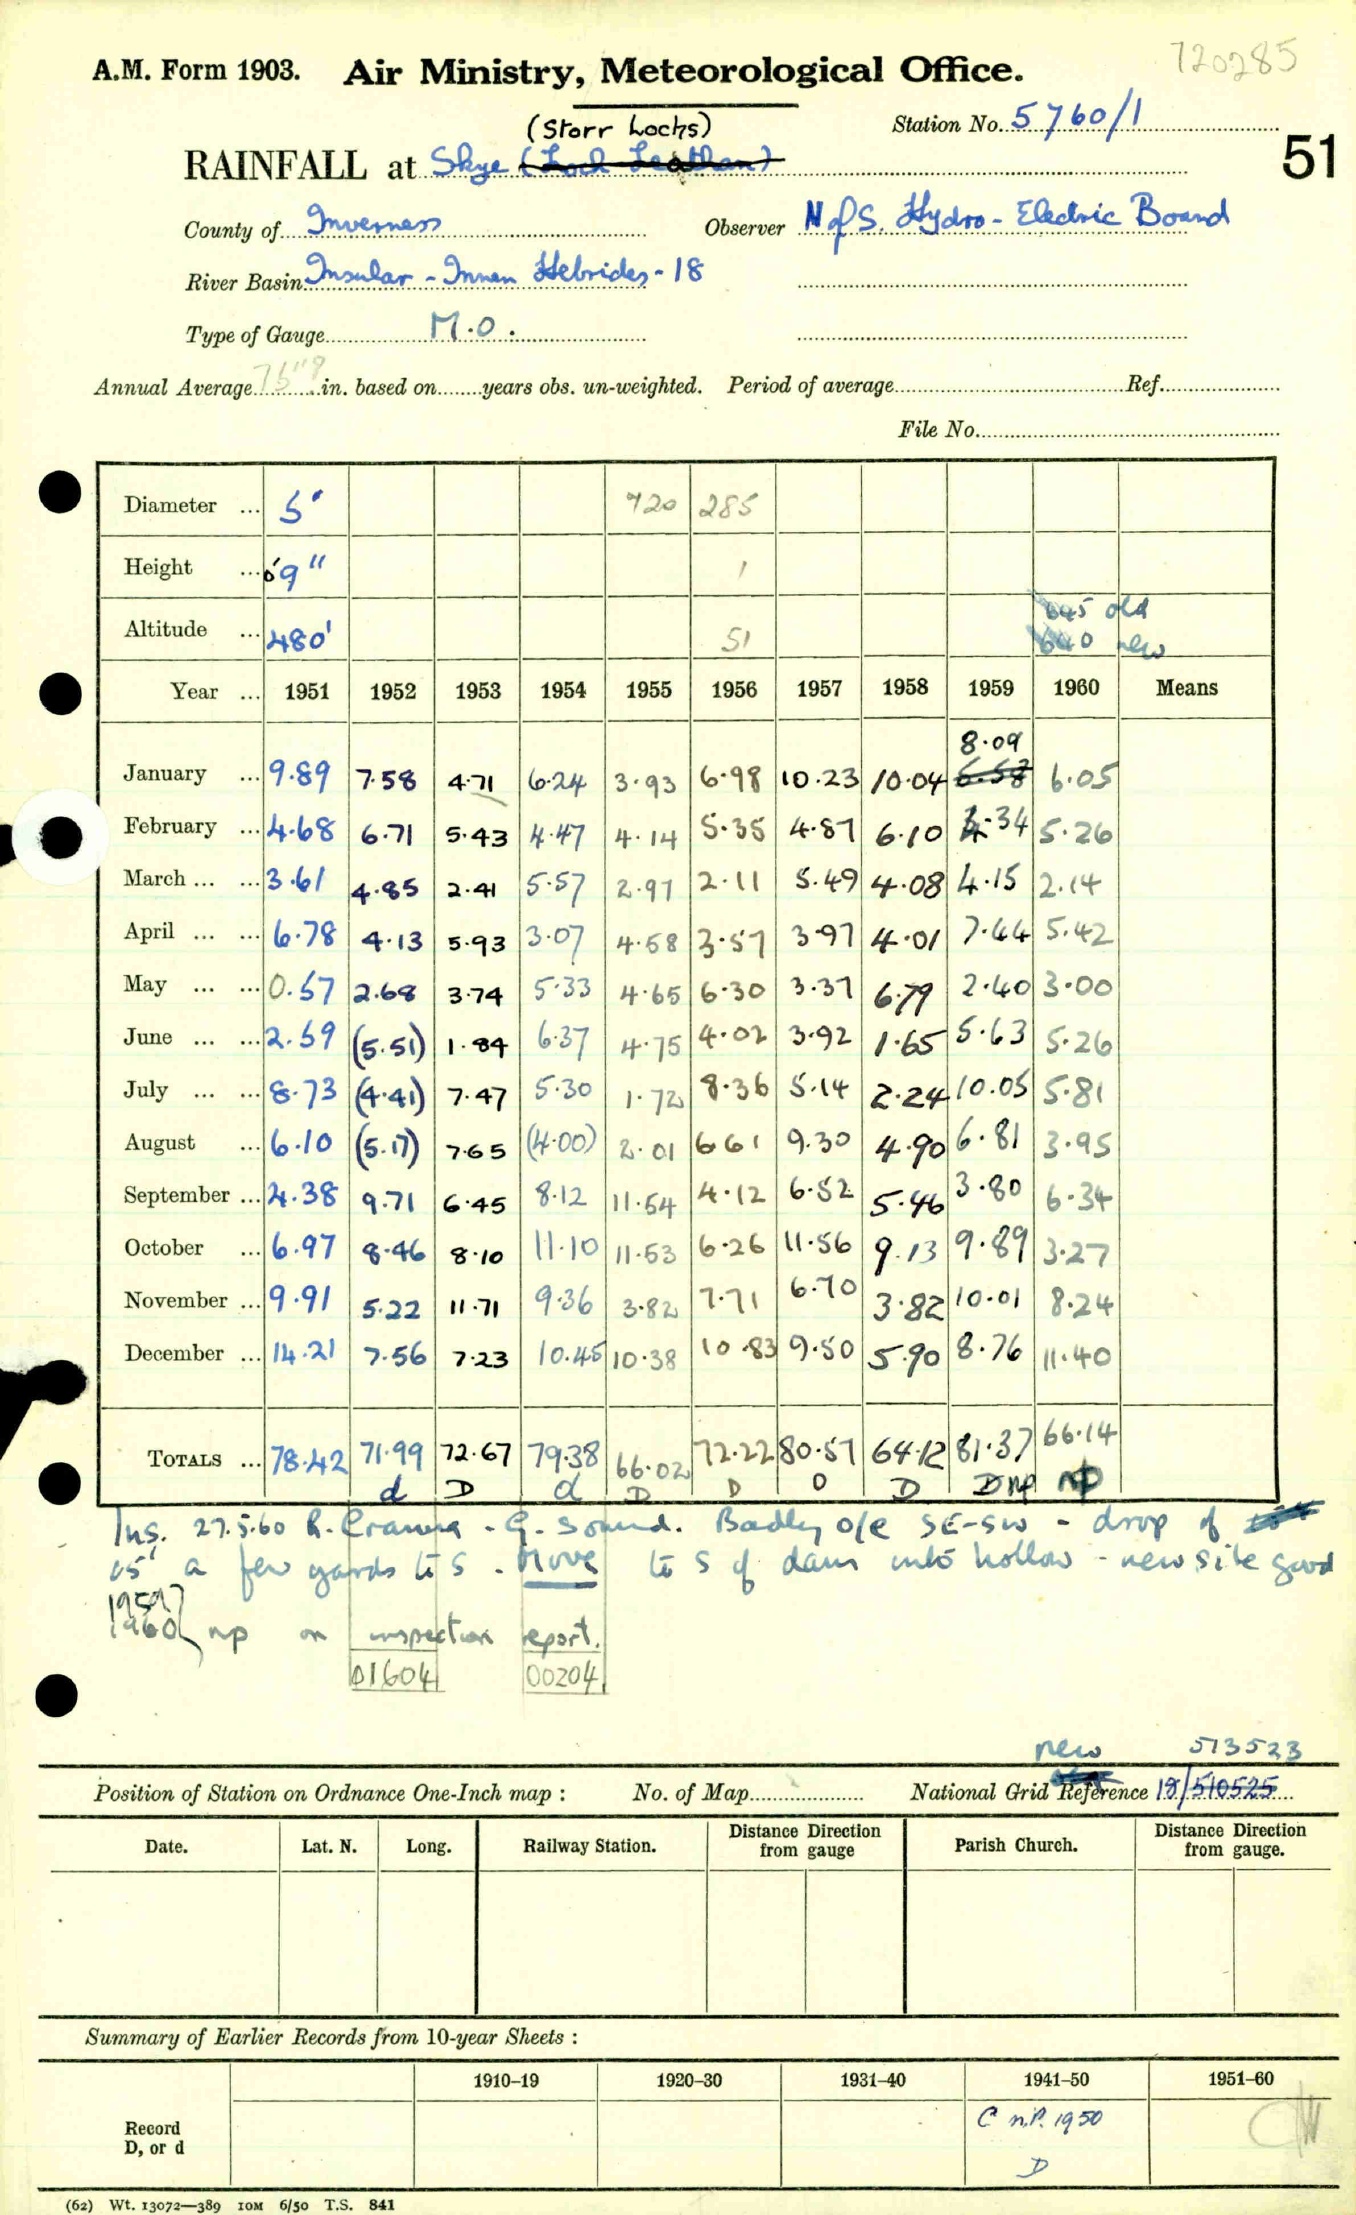 720285
A.M. Form 1903. Air Ministry, Meteorological Office.
(Storr Lochs) Station No. 5760/1
RAINFALL at Skye (Loch Leathan) 51
County of Inverness Observer N of S. Hydro-Electric Board
River Basin Insular - Inner Hebrides - 18
Type of Gauge M.O.
Annual Average in. based on years obs. un-weighted. Period of average Ref.
File No.
Diameter ... 5" 720 285
Height ... 0'9" 1
645 old
Altitude ... 480' 51 640 new
Year ... 1951 1952 1953 1954 1955 1956 1957 1958 1959 1960 Means
8.09
January ... 9.89 7.58 4.71 6.24 3.93 6.98 10.23 10.04 6.58 6.05
February ... 4.68 6.71 5.43 4.47 4.14 5.35 4.87 6.10 4.34 5.26
March ... ... 3.61 4.85 2.41 5.57 2.97 2.11 5.49 4.08 4.15 2.14
April ... ... 6.78 4.13 5.93 3.07 4.58 3.57 3.97 4.01 7.44 5.42
May ... ... 0.57 2.68 3.74 5.33 4.65 6.30 3.37 6.79 2.40 3.00
June ... ... 2.59 (5.51) 1.84 6.37 4.75 4.02 3.92 1.65 5.63 5.26
July ... ... 8.73 (4.41) 7.47 5.30 1.72 8.36 5.14 2.24 10.05 5.81
August ... 6.10 (5.17) 7.65 (4.00) 2.01 6.61 9.30 4.90 6.81 3.95
September ... 4.38 9.71 6.45 8.12 11.54 4.12 6.52 5.46 3.80 6.34
October ... 6.97 8.46 8.10 11.10 11.53 6.26 11.56 9.13 9.89 3.27
November ... 9.91 5.22 11.71 9.36 3.82 7.71 6.70 3.82 10.01 8.24
December ... 14.21 7.56 7.23 10.45 10.38 10.83 9.50 5.90 8.76 11.40
TOTALS ... 78.42 71.99 72.67 79.38 66.02 72.22 80.57 64.12 81.37 66.14
d D d D D D D D np np
Ins. 27.5.60 R. Cranna - G. Sound. Badly o/e SE-SW - drop of
15' a few yards to S. Move to S of dam into hollow - new site good
1959
1960 } np on inspection report.
01604 00204
new 513523
Position of Station on Ordnance One-Inch map : No. of Map National Grid Reference 18/510525
Date. Lat. N. Long. Railway Station. Distance from gauge Direction Parish Church. Distance from gauge. Direction
Summary of Earlier Records from 10-year Sheets :
1910–19 1920–30 1931–40 1941–50 1951–60
Record
D, or d
C n.P. 1950
D
(62) Wt. 13072—389 10M 6/50 T.S. 841